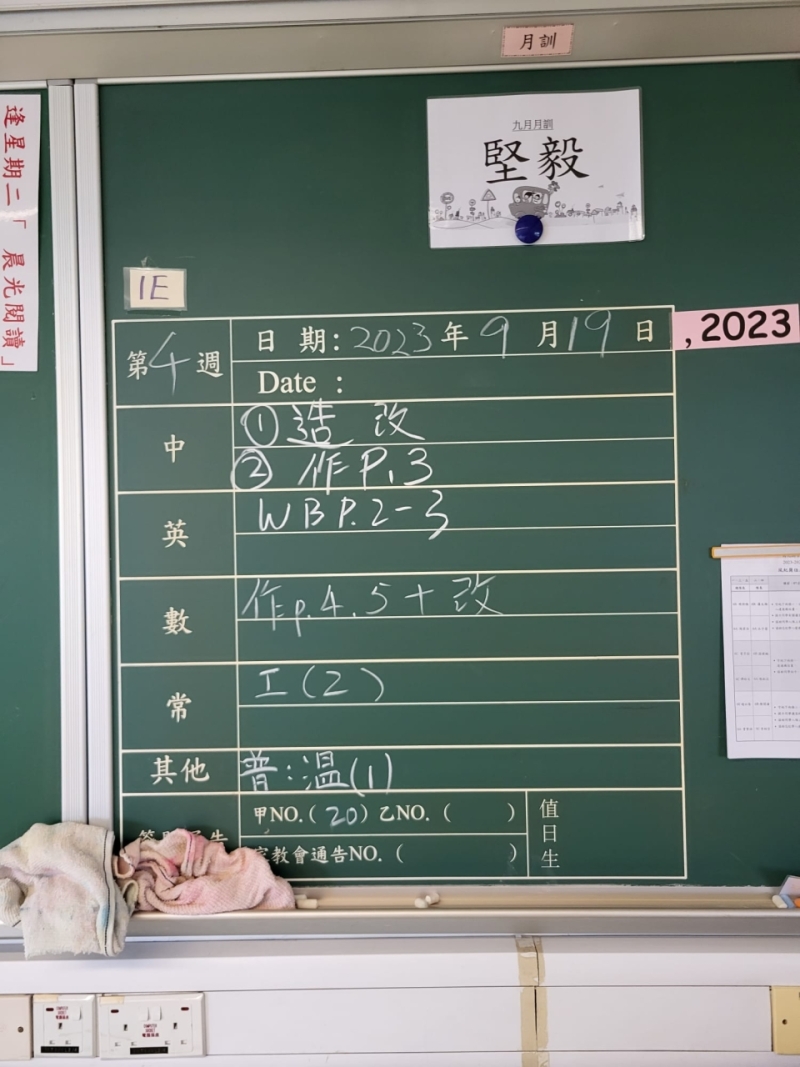 月訓
九月月訓
堅毅
逢星期二「 晨光閱讀」
1E
第4週
日期: 2023年9月19日
, 2023
Date :
中
① 造 改
② 作 P.3
英
WB P.2-3
數
作 p.4.5 + 改
常
工(2)
其他
普:溫(1)
甲NO.( 20 ) 乙NO.( )
教會通告NO.( )
值日生